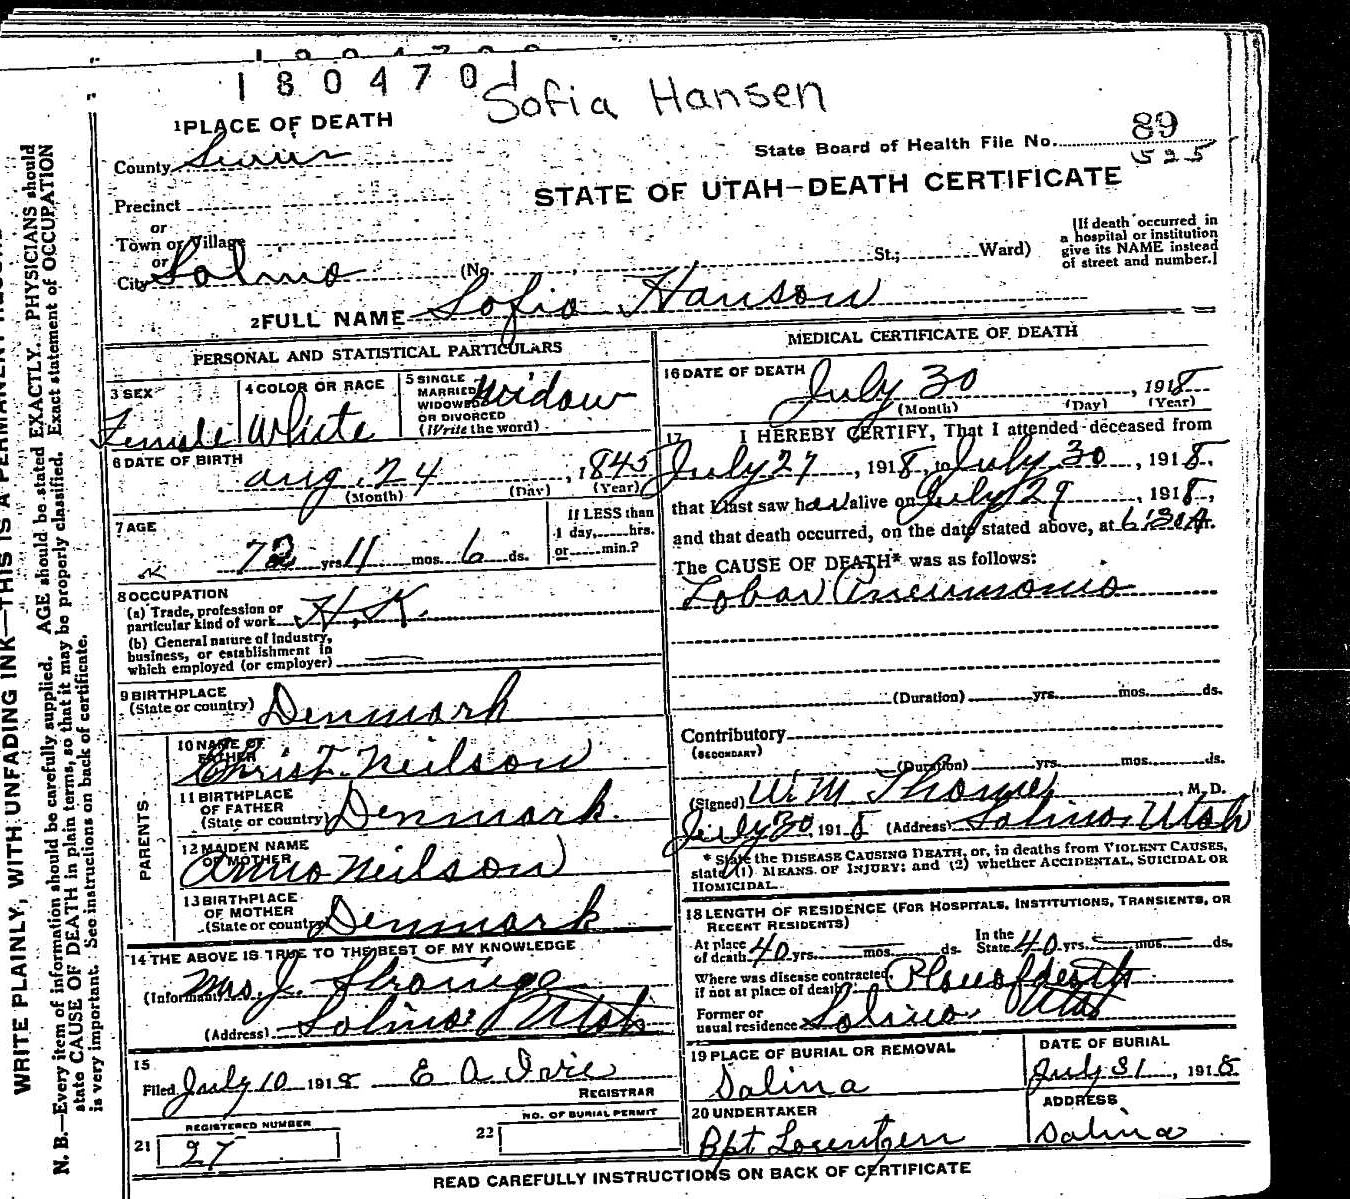 1804701
Sofia Hansen
1 PLACE OF DEATH
County Sevier
State Board of Health File No. 89
525
STATE OF UTAH—DEATH CERTIFICATE
Precinct
or
Town or Village
or
City Salina (No. St.; Ward)
[If death occurred in
a hospital or institution
give its NAME instead
of street and number.]
2 FULL NAME Sofia Hanson
PERSONAL AND STATISTICAL PARTICULARS
3 SEX Female
4 COLOR OR RACE White
5 SINGLE
MARRIED
WIDOWED
OR DIVORCED
(Write the word) Widow
6 DATE OF BIRTH Aug. 24, 1845
(Month) (Day) (Year)
7 AGE
72 yrs 11 mos. 6 ds.
If LESS than
1 day, hrs.
or min.?
8 OCCUPATION
(a) Trade, profession or
particular kind of work H. K.
(b) General nature of industry,
business, or establishment in
which employed (or employer)
9 BIRTHPLACE
(State or country) Denmark
PARENTS
10 NAME OF
FATHER Christ. Neilson
11 BIRTHPLACE
OF FATHER
(State or country) Denmark.
12 MAIDEN NAME
OF MOTHER Anna Neilson
13 BIRTHPLACE
OF MOTHER
(State or country) Denmark
14 THE ABOVE IS TRUE TO THE BEST OF MY KNOWLEDGE
(Informant) Mrs. J.
(Address) Salina Utah
15
Filed July 10 1918 E A Ivie
REGISTRAR
21 REGISTERED NUMBER
27
22 NO. OF BURIAL PERMIT
MEDICAL CERTIFICATE OF DEATH
16 DATE OF DEATH July 30, 1918
(Month) (Day) (Year)
17 I HEREBY CERTIFY, That I attended deceased from
July 27, 1918, to July 30, 1918,
that I last saw her alive on July 29, 1918,
and that death occurred, on the date stated above, at 6:30 A.
The CAUSE OF DEATH* was as follows:
Lobar Pneumonia
(Duration) yrs. mos. ds.
Contributory
(SECONDARY)
(Duration) yrs. mos. ds.
(Signed) M. D.
July 30 1918 (Address) Salina, Utah
* State the DISEASE CAUSING DEATH, or, in deaths from VIOLENT CAUSES,
state (1) MEANS OF INJURY; and (2) whether ACCIDENTAL, SUICIDAL OR
HOMICIDAL.
18 LENGTH OF RESIDENCE (FOR HOSPITALS, INSTITUTIONS, TRANSIENTS, OR
RECENT RESIDENTS)
At place
of death 40 yrs. mos. ds.
In the
State 40 yrs. mos. ds.
Where was disease contracted,
if not at place of death? Place of death
Former or
usual residence Salina, Utah
19 PLACE OF BURIAL OR REMOVAL
Salina
DATE OF BURIAL
July 31, 1918
20 UNDERTAKER
Lorentzen
ADDRESS
Salina
READ CAREFULLY INSTRUCTIONS ON BACK OF CERTIFICATE
WRITE PLAINLY, WITH UNFADING INK—THIS IS A PERMANENT
N. B.—Every item of information should be carefully supplied. AGE should be stated EXACTLY. PHYSICIANS should
state CAUSE OF DEATH in plain terms, so that it may be properly classified. Exact statement of OCCUPATION
is very important. See instructions on back of certificate.